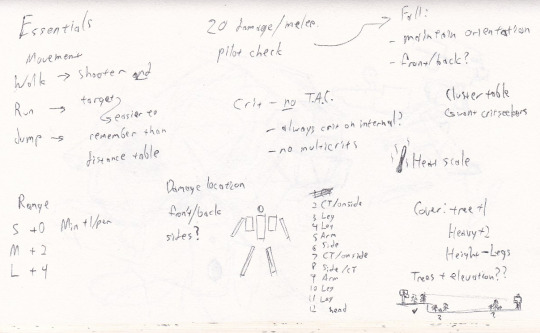 Essentials
Movement
Walk → shooter and
Run → target
easier to
Jump → remember than
distance table
20 damage/melee
pilot check
Fall:
- maintain orientation
- front/back?
Crit - no T.A.C.
- always crit on internal?
- no multicrits
Cluster table
Heat scale
Range
S +0 Min +1/per
M +2
L +4
Damage location
front/back
sides?
2 CT/onside
3 Leg
4 Leg
5 Arm
6 Side
7 CT/onside
8 Side/CT
9 Arm
10 Leg
11 Leg
12 head
Cover: tree +1
Heavy +2
Height - Legs
Trees + elevation??